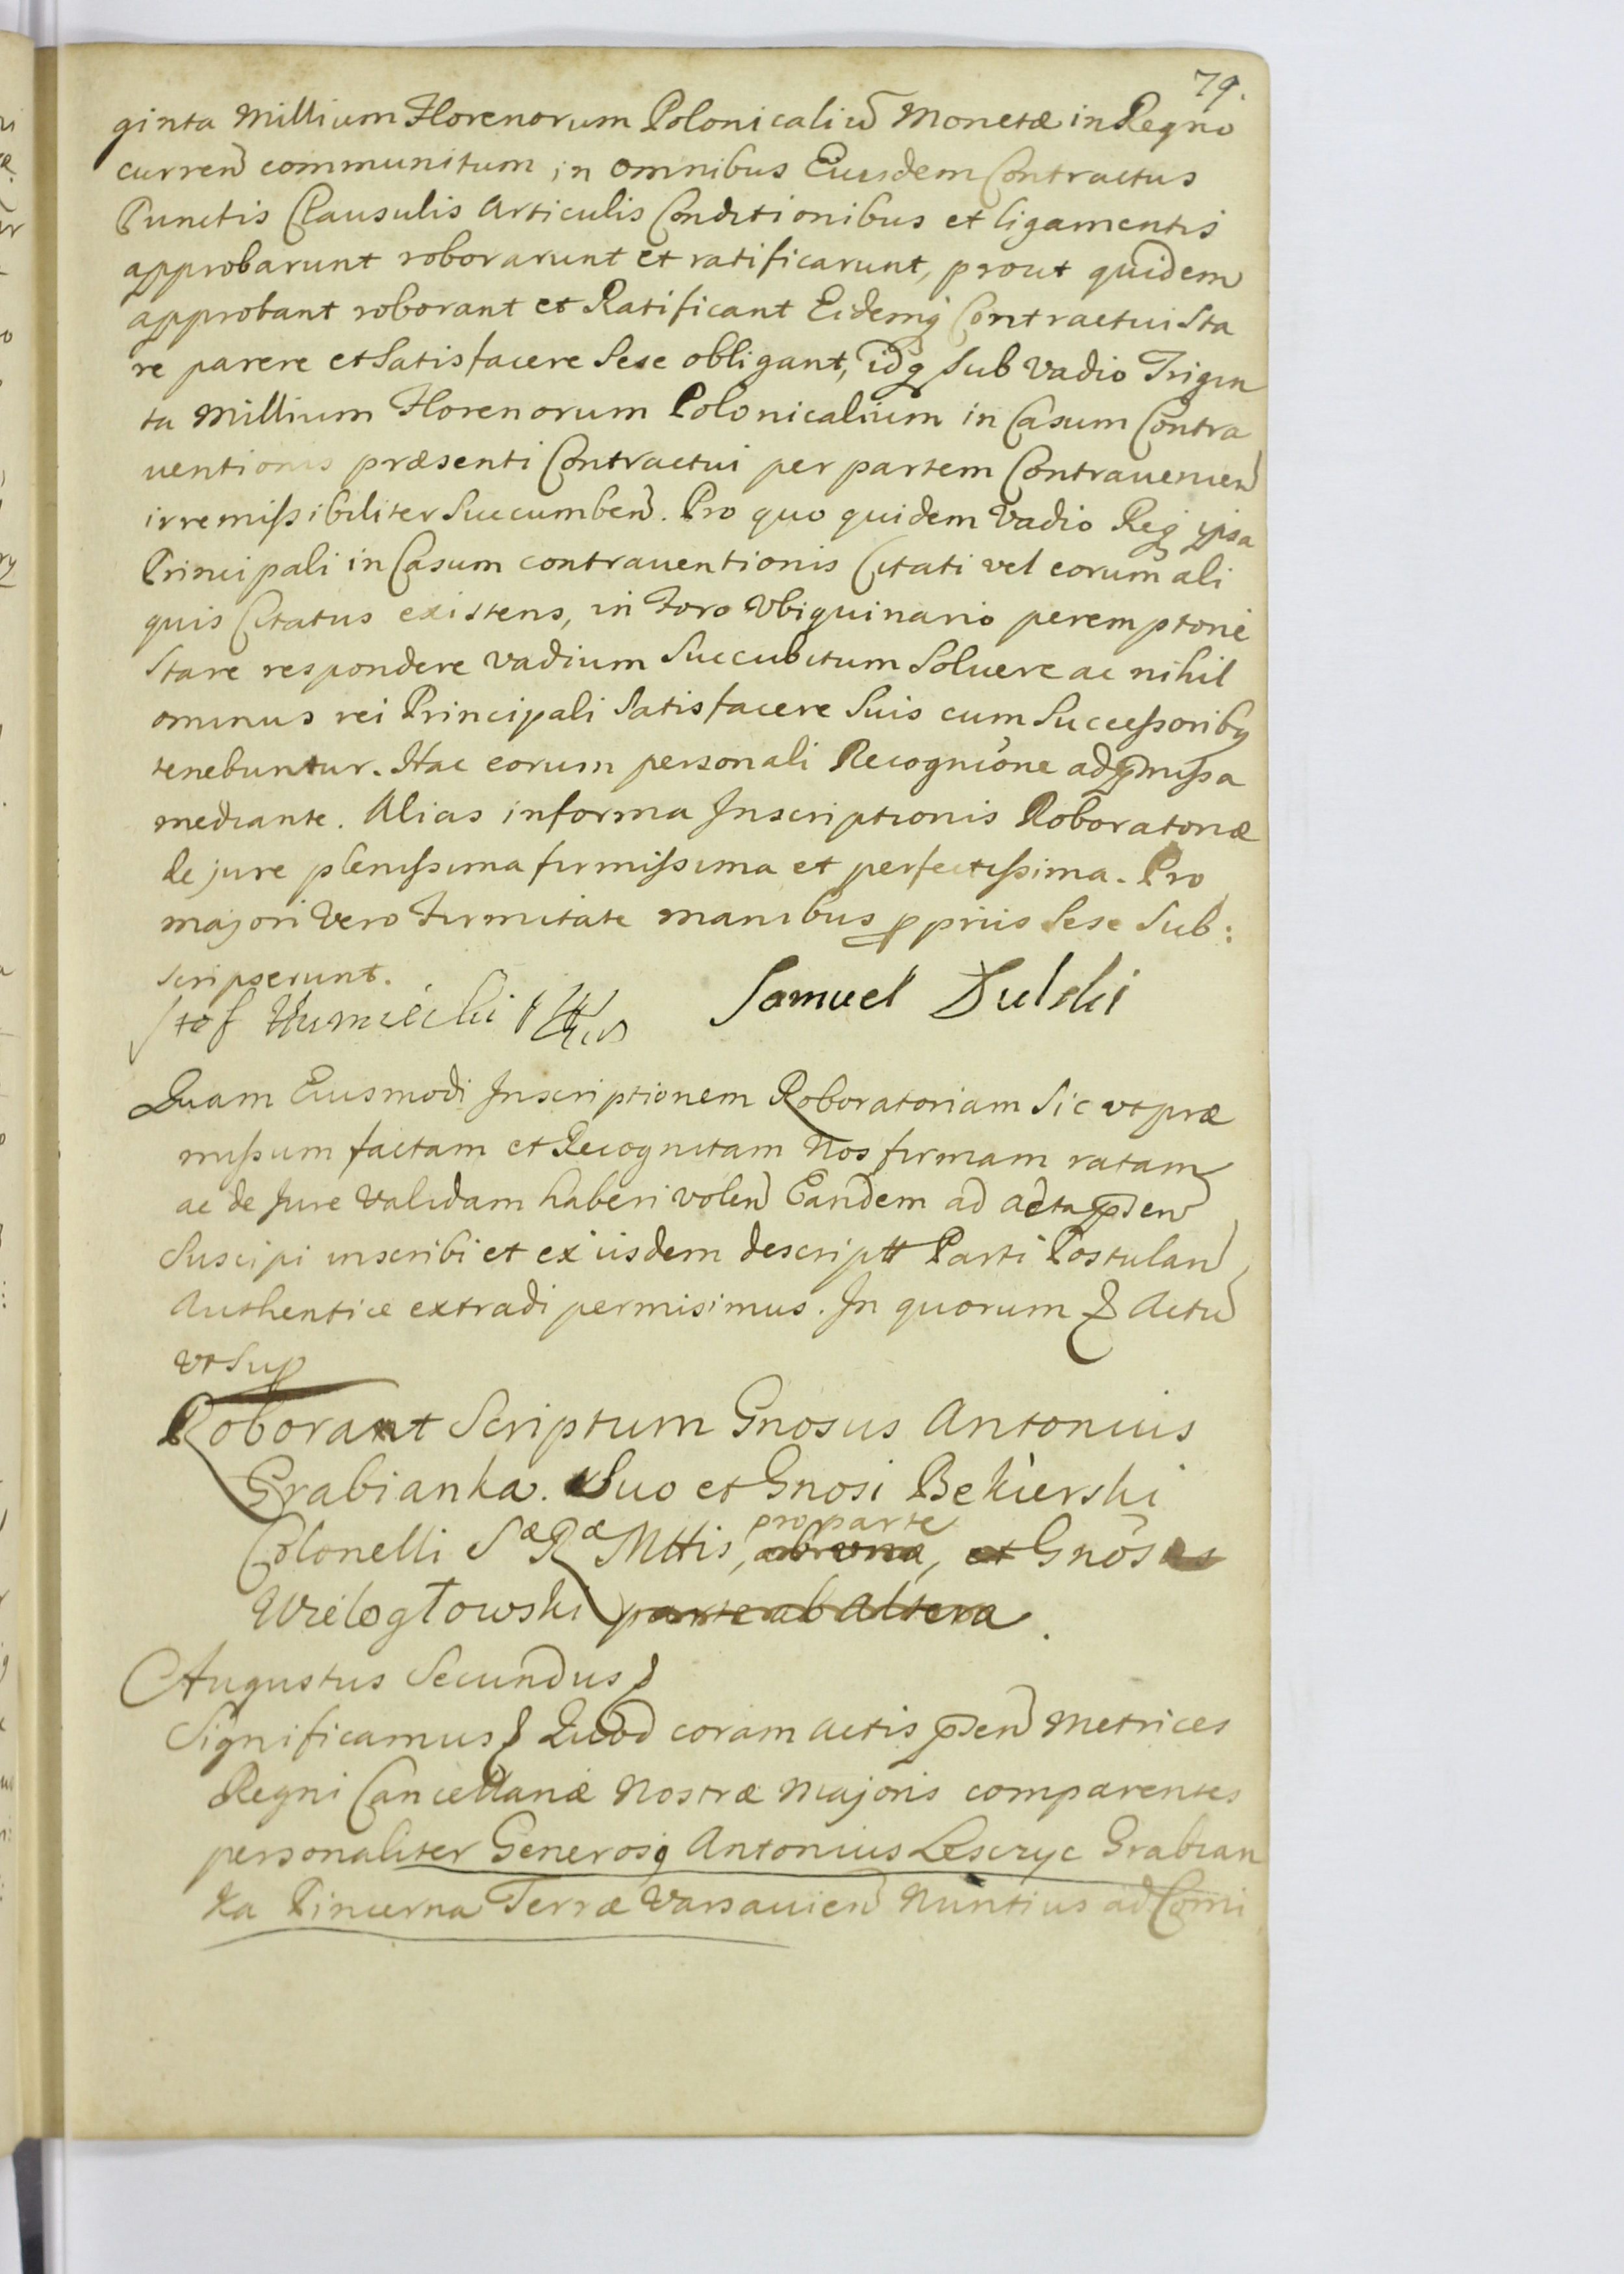 79.
ginta Millium Florenorum Polonicaliũ Monetæ in Regno
curreñ communitum in omnibus Eiusdem Contractus
Punctis Clausulis Articulis Conditionibus et ligamentis
approbarunt roborarunt et ratificarunt, prout quidem
approbant roborant et Ratificant Eidemq Contractui Sta
re parere et Satisfacere Sese obligant, idq sub Vadio Trigin
ta Millium Florenorum Polonicalium in Casum Contra
uentionis præsenti Contractui per partem Contrauenień
irremissibiliter Succumbeñ. Pro quo quidem Vadio Req ipsa
Principali in Casum contrauentionis Citati vel eorum ali
quis Citatus existens, in Foro Vbiquinario peremptorie
Stare respondere vadium Succubitum Soluere ac nihil
ominus rei Principali Satisfacere Suis cum Successoribq
tenebuntur. Hac eorum personali Recogniõne ad pmissa
mediante. Alias in forma Inscriptionis Roboratoriæ
de jure plenissima firmissima et perfectissima. Pro
majori Vero Firmitate manibus ppriis Sese Sub:
scripserunt.
Stef Humiecki Samuel Dulski
Quam Eiusmodi Inscriptionem Roboratoriam Sic vt præ
missum factam et Recognitam Nos firmam ratam
ac de Jure Validam haberi voleñ Eandem ad Acta pseñ
Suscipi inscribi et ex iisdem descriptt Parti Postulañ
Authentice extradi permisimus. In quorum & Actũ
vt Sup
Roborant Scriptum Gnosus Antonius
Grabianka. Suo et Gnosi Bekierski
Colonelli Sæ Ræ Mttis, pro parte ab una, et Gnõsus
Wielogłowski parte ab altera.
Augustus Secundus
Significamus Quod coram Actis pseñ Metrices
Regni Cancellariæ Nostræ Majoris comparentes
personaliter Generosq Antonius Lesczyc Grabian
ka Pincerna Terræ Varsauieñ Nuntius ad Comi